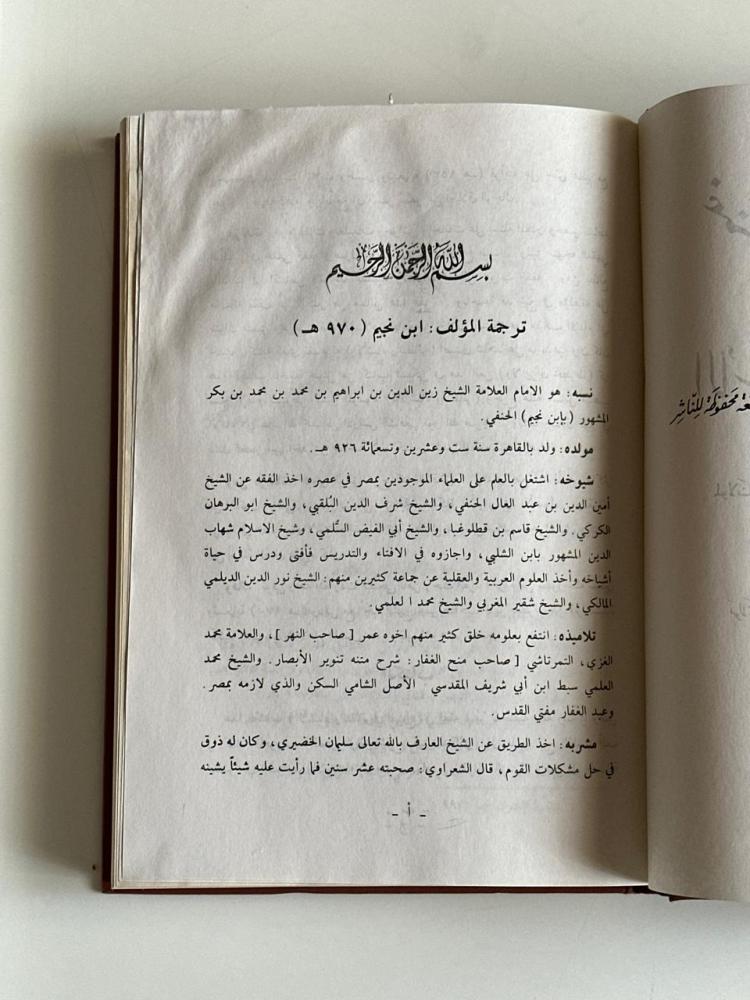 بسم الله الرحمن الرحيم
ترجمة المؤلف: ابن نجيم (٩٧٠ هـ)
نسبه: هو الامام العلامة الشيخ زين الدين بن ابراهيم بن محمد بن محمد بن بكر
المشهور (بإبن نجيم) الحنفي.
مولده: ولد بالقاهرة سنة ست وعشرين وتسعمائة ٩٢٦ هـ.
شيوخه: اشتغل بالعلم على العلماء الموجودين بمصر في عصره اخذ الفقه عن الشيخ
أمين الدين بن عبد العال الحنفي، والشيخ شرف الدين البُلقبي، والشيخ ابو البرهان
الكركي. والشيخ قاسم بن قطلوغبا، والشيخ أبي الفيض السُّلمي، وشيخ الاسلام شهاب
الدين المشهور بابن الشلبي، واجازوه في الافتاء والتدريس فأفتى ودرس في حياة
أشياخه وأخذ العلوم العربية والعقلية عن جماعة كثيرين منهم: الشيخ نور الدين الديلمي
المالكي، والشيخ شقير المغربي والشيخ محمد ا لعلمي.
تلاميذه: انتفع بعلومه خلق كثير منهم اخوه عمر [صاحب النهر]، والعلامة محمد
الغزي، التمرتاشي [ صاحب منح الغفار: شرح متنه تنوير الأبصار. والشيخ محمد
العلمي سبط ابن أبي شريف المقدسي الأصل الشامي السكن والذي لازمه بمصر.
وعبد الغفار مفتي القدس.
مشربه: اخذ الطريق عن الشيخ العارف بالله تعالى سليمان الخضيري، وكان له ذوق
في حل مشكلات القوم، قال الشعراوي: صحبته عشر سنين فما رأيت عليه شيئاً يشينه
- أ -
محفوظة للناشر